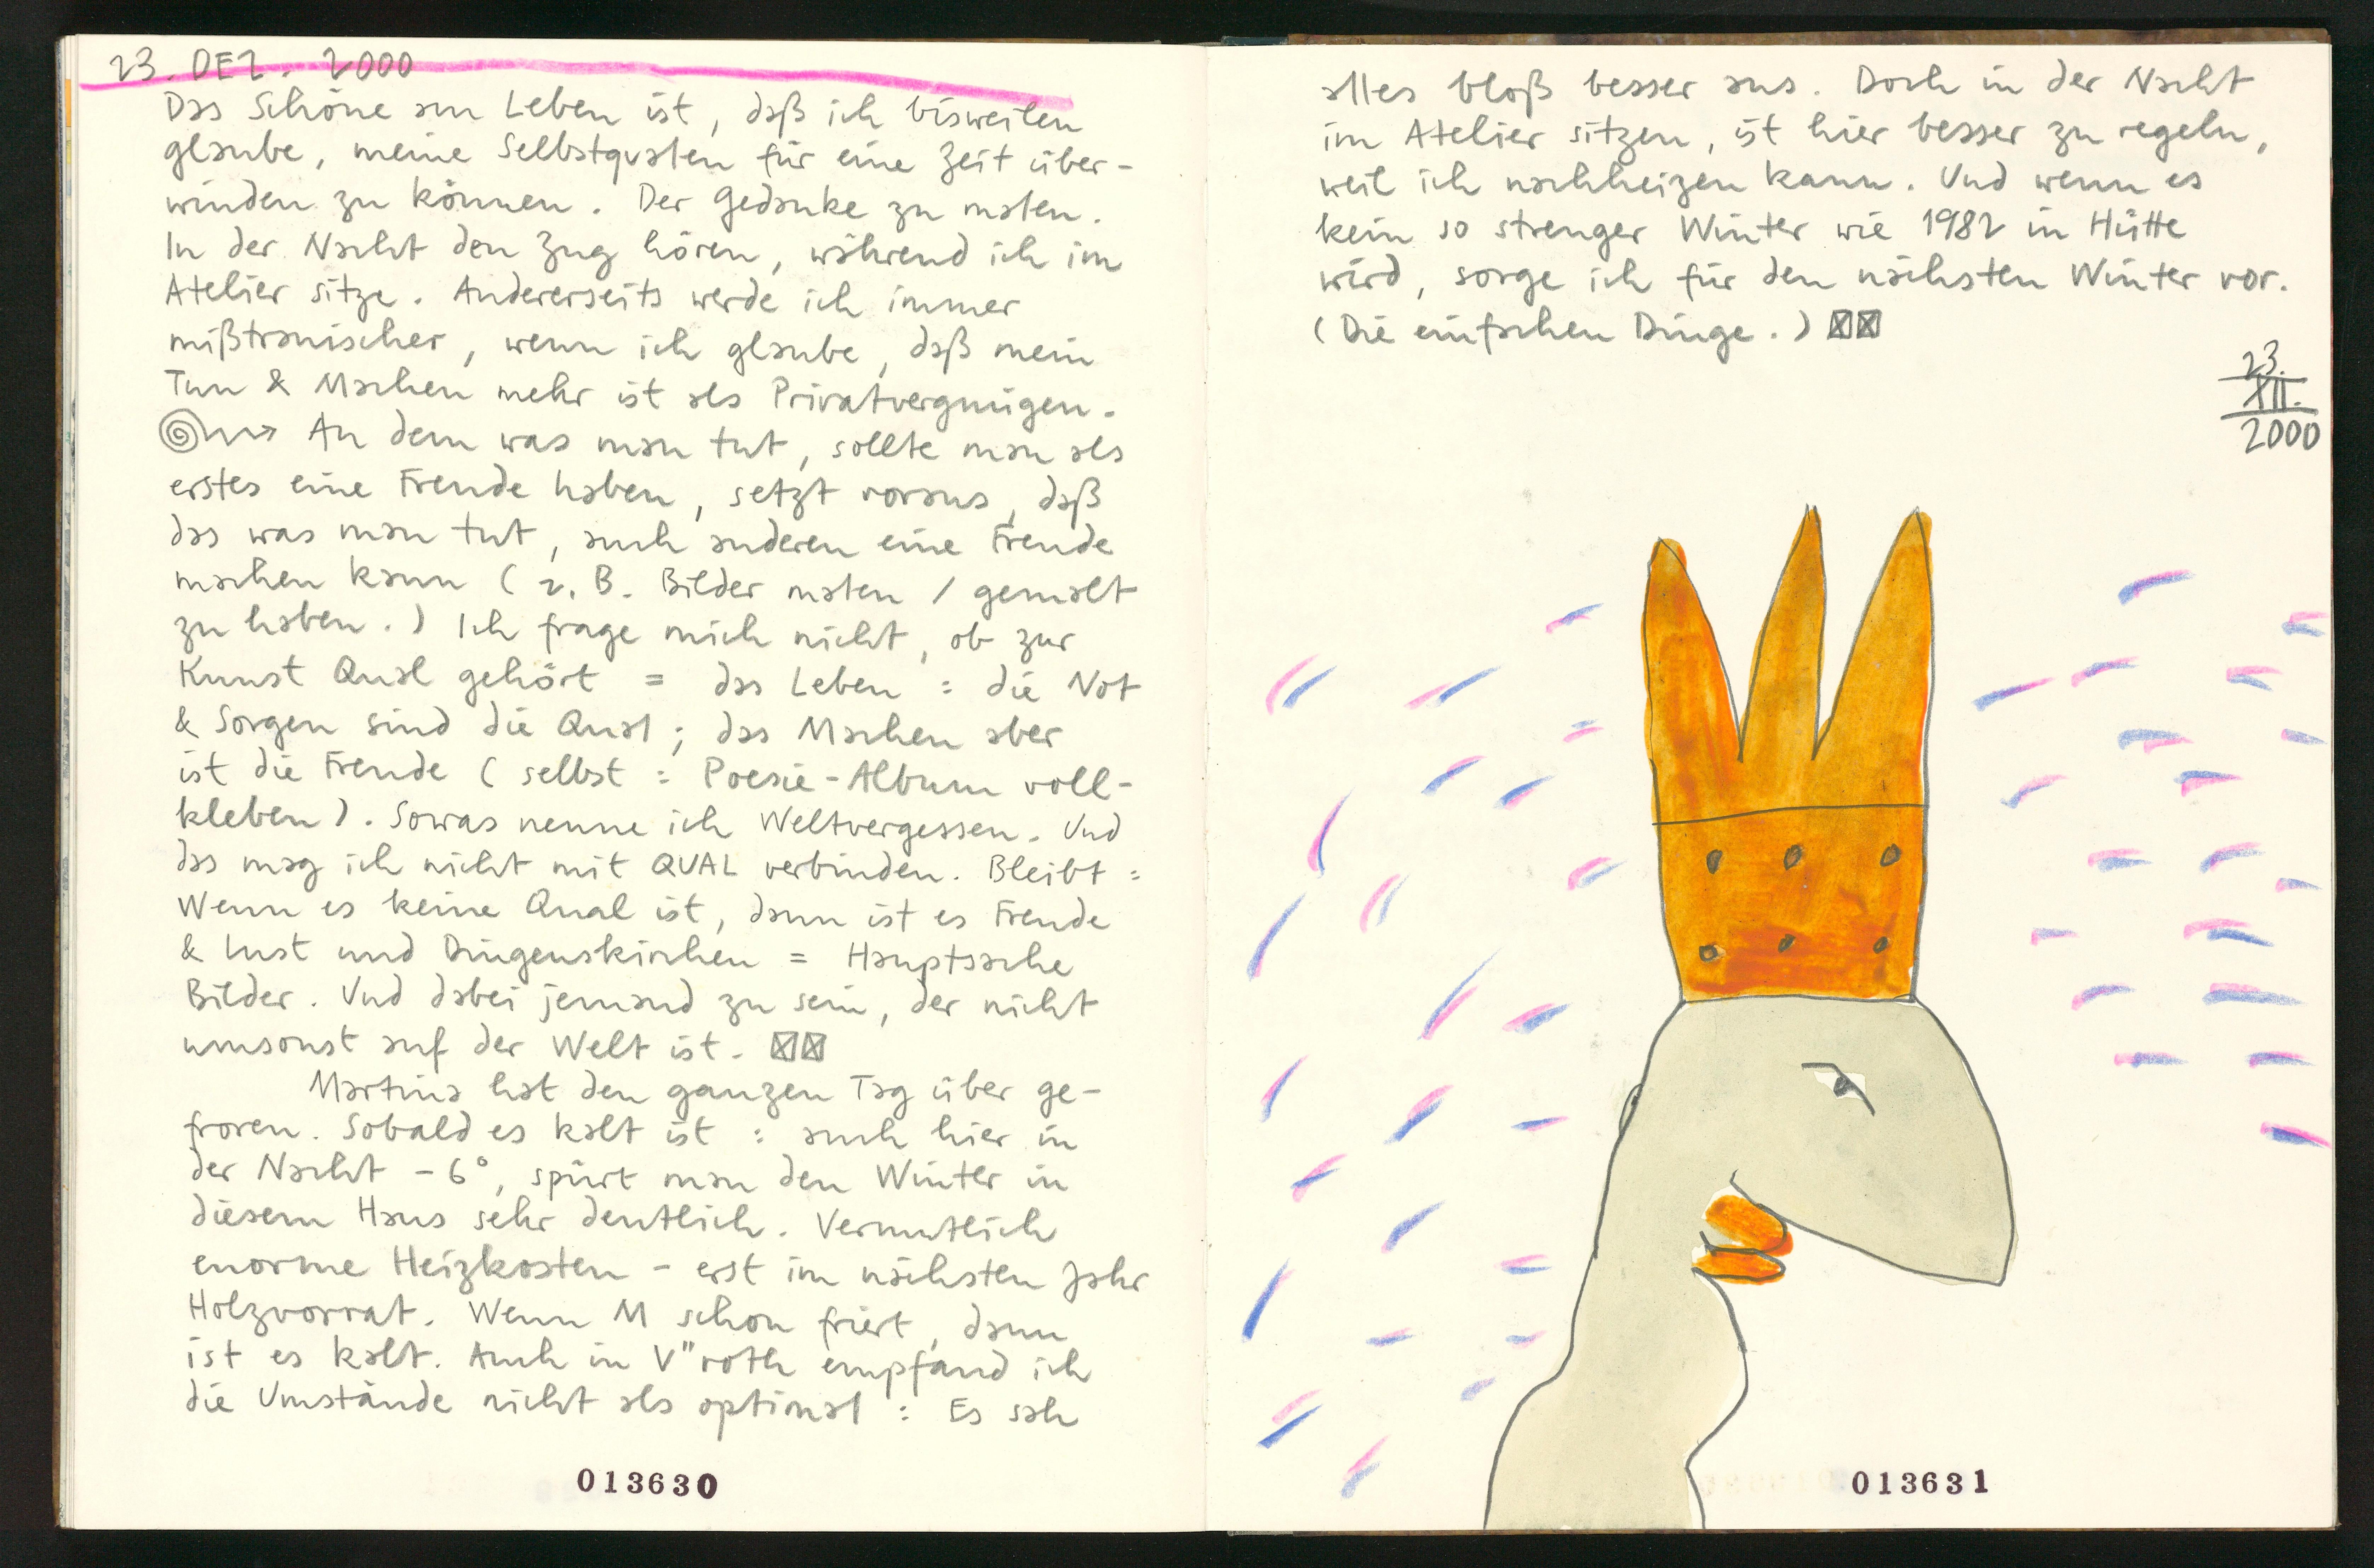 23. DEZ. 2000
Das Schöne am Leben ist, daß ich bisweilen
glaube, meine Selbstqualen für eine Zeit über-
winden zu können. Der Gedanke zu malen.
In der Nacht den Zug hören, während ich im
Atelier sitze. Andererseits werde ich immer
mißtrauischer, wenn ich glaube, daß mein
Tun & Machen mehr ist als Privatvergnügen.
An dem was man tut, sollte man als
erstes eine Freude haben, setzt voraus, daß
das was man tut, auch anderen eine Freude
machen kann (z. B. Bilder malen / gemalt
zu haben.) Ich frage mich nicht, ob zur
Kunst Qual gehört = das Leben : die Not
& Sorgen sind die Qual; das Machen aber
ist die Freude (selbst : Poesie-Album voll-
kleben). Sowas nenne ich Weltvergessen. Und
das mag ich nicht mit QUAL verbinden. Bleibt :
Wenn es keine Qual ist, dann ist es Freude
& Lust und Dingenskirchen = Hauptsache
Bilder. Und dabei jemand zu sein, der nicht
umsonst auf der Welt ist.
Martina hat den ganzen Tag über ge-
froren. Sobald es kalt ist : auch hier in
der Nacht -6°, spürt man den Winter in
diesem Haus sehr deutlich. Vermutlich
enorme Heizkosten - erst im nächsten Jahr
Holzvorrat. Wenn M schon friert, dann
ist es kalt. Auch in V"roth empfand ich
die Umstände nicht als optimal : Es sah
013630
alles bloß besser aus. Doch in der Nacht
im Atelier sitzen, ist hier besser zu regeln,
weil ich nachheizen kann. Und wenn es
kein so strenger Winter wie 1982 in Hütte
wird, sorge ich für den nächsten Winter vor.
(Die einfachen Dinge.)
23.
XII.
2000
013631